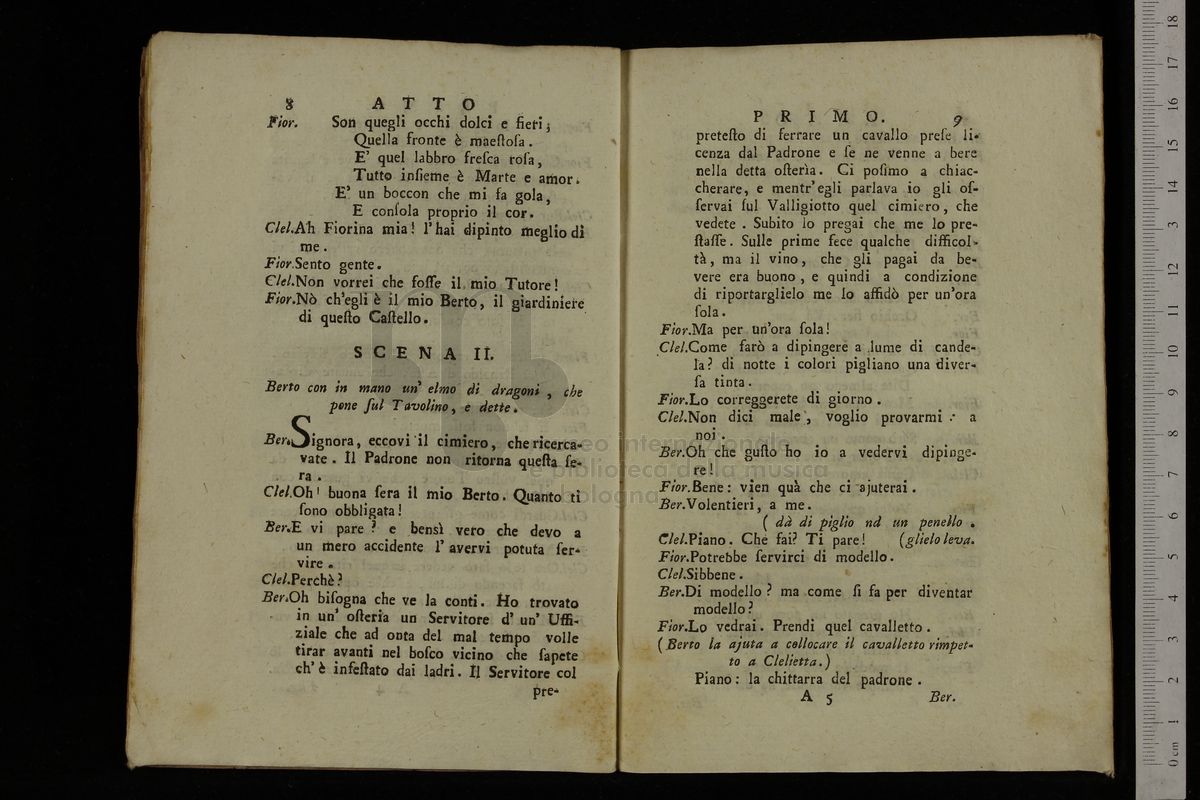 8 ATTO
Fior. Son quegli occhi dolci e fieri;
Quella fronte è maeſtoſa.
E' quel labbro freſca roſa,
Tutto inſieme è Marte e amor.
E' un boccon che mi fa gola,
E conſola proprio il cor.
Clel.Ah Fiorina mia! l'hai dipinto meglio di
me.
Fior.Sento gente.
Clel.Non vorrei che foſſe il mio Tutore!
Fior.Nò ch'egli è il mio Berto, il giardiniere
di queſto Caſtello.
SCENA II.
Berto con in mano un' elmo di dragoni, che
pone ſul Tavolino, e dette.
Ber.Signora, eccovi il cimiero, che ricerca-
vate. Il Padrone non ritorna queſta ſe-
ra.
Clel.Oh! buona ſera il mio Berto. Quanto ti
ſono obbligata!
Ber.E vi pare? e bensì vero che devo a
un mero accidente l'avervi potuta ſer-
vire.
Clel.Perchè?
Ber.Oh biſogna che ve la conti. Ho trovato
in un' oſteria un Servitore d' un' Uffi-
ziale che ad onta del mal tempo volle
tirar avanti nel boſco vicino che ſapete
ch'è infeſtato dai ladri. Il Servitore col
pre-
PRIMO. 9
preteſto di ferrare un cavallo preſe li-
cenza dal Padrone e ſe ne venne a bere
nella detta oſterìa. Ci poſimo a chiac-
cherare, e mentr'egli parlava io gli oſ-
ſervai ſul Valligiotto quel cimiero, che
vedete. Subito io pregai che me lo pre-
ſtaſſe. Sulle prime fece qualche difficol-
tà, ma il vino, che gli pagai da be-
vere era buono, e quindi a condizione
di riportarglielo me lo affidò per un'ora
ſola.
Fior.Ma per un'ora ſola!
Clel.Come farò a dipingere a lume di cande-
la? di notte i colori pigliano una diver-
ſa tinta.
Fior.Lo correggerete di giorno.
Clel.Non dici male, voglio provarmi: a
noi.
Ber.Oh che guſto ho io a vedervi dipinge-
re!
Fior.Bene: vien quà che ci ajuterai.
Ber.Volentieri, a me.
( dà di piglio nd un penello.
Clel.Piano. Che fai? Ti pare! (glielo leva.
Fior.Potrebbe ſervirci di modello.
Clel.Sibbene.
Ber.Di modello? ma come ſi fa per diventar
modello?
Fior.Lo vedrai. Prendi quel cavalletto.
(Berto la ajuta a collocare il cavalletto rimpet-
to a Clelietta.)
Piano: la chittarra del padrone.
A 5 Ber.
museo internazionale
e biblioteca della musica
di bologna